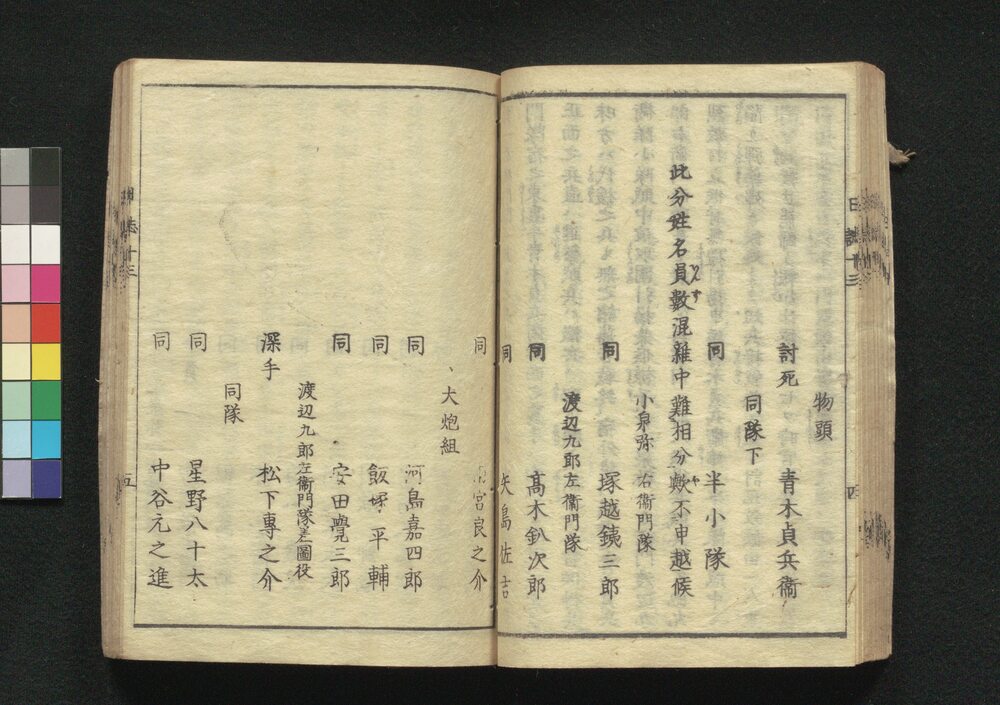 日誌十三
物頭
討死 青木貞兵衞
同隊下
同 半小隊
此分姓名員數混雜中難相分歟不申越候
小泉弥右衞門隊
同 塚越銕三郎
渡辺九郎左衞門隊
同 髙木釟次郎
同 矢島佐吉
四
同 宮良之介
大炮組
同 河島嘉四郎
同 飯塚平輔
同 安田覺三郎
渡辺九郎左衞門隊差圖役
深手 松下專之介
同隊
同 星野八十太
同 中谷元之進
日誌十三
五